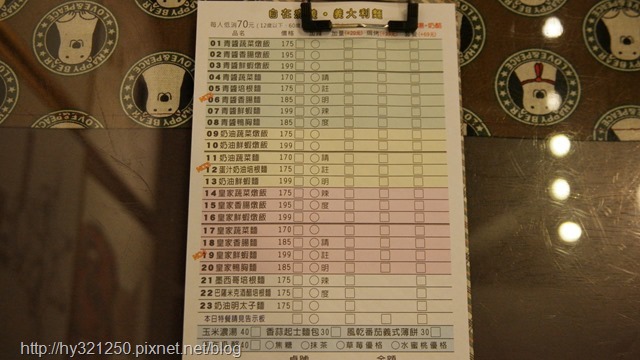 自在 義大利麵
每人低消70元
品名 價格 加辣 加量
01 青醬蔬菜燉飯 175
02 青醬香腸燉飯 195
03 青醬鮮蝦燉飯 199
04 青醬蔬菜麵 170 請
05 青醬培根麵 175 註
06 青醬香腸麵 185 明
07 青醬鮮蝦麵 199 辣
08 青醬鴨胸麵 185 度
09 奶油蔬菜燉飯 175
10 奶油鮮蝦燉飯 199
11 奶油蔬菜麵 170 請
12 蛋汁奶油培根麵 175 註
13 奶油鮮蝦麵 199 明
14 皇家蔬菜燉飯 175 辣
15 皇家香腸燉飯 195 度
16 皇家鮮蝦燉飯 199
17 皇家蔬菜麵 170
18 皇家香腸麵 185 請
19 皇家鮮蝦麵 199 註
20 皇家鴨胸麵 185 明
21 墨西哥培根麵 175 辣
22 巴薩米克酒醋培根麵 175 度
23 奶油明太子麵 185
本日特餐請見告示板
玉米濃湯 40 香蒜起士麵包 30 風乾番茄義式薄餅 30
焦糖 抹茶 草莓優格 水蜜桃優格
桌號 金額
HAPPY BEAR
http://hy321250.pixnet.net/blog